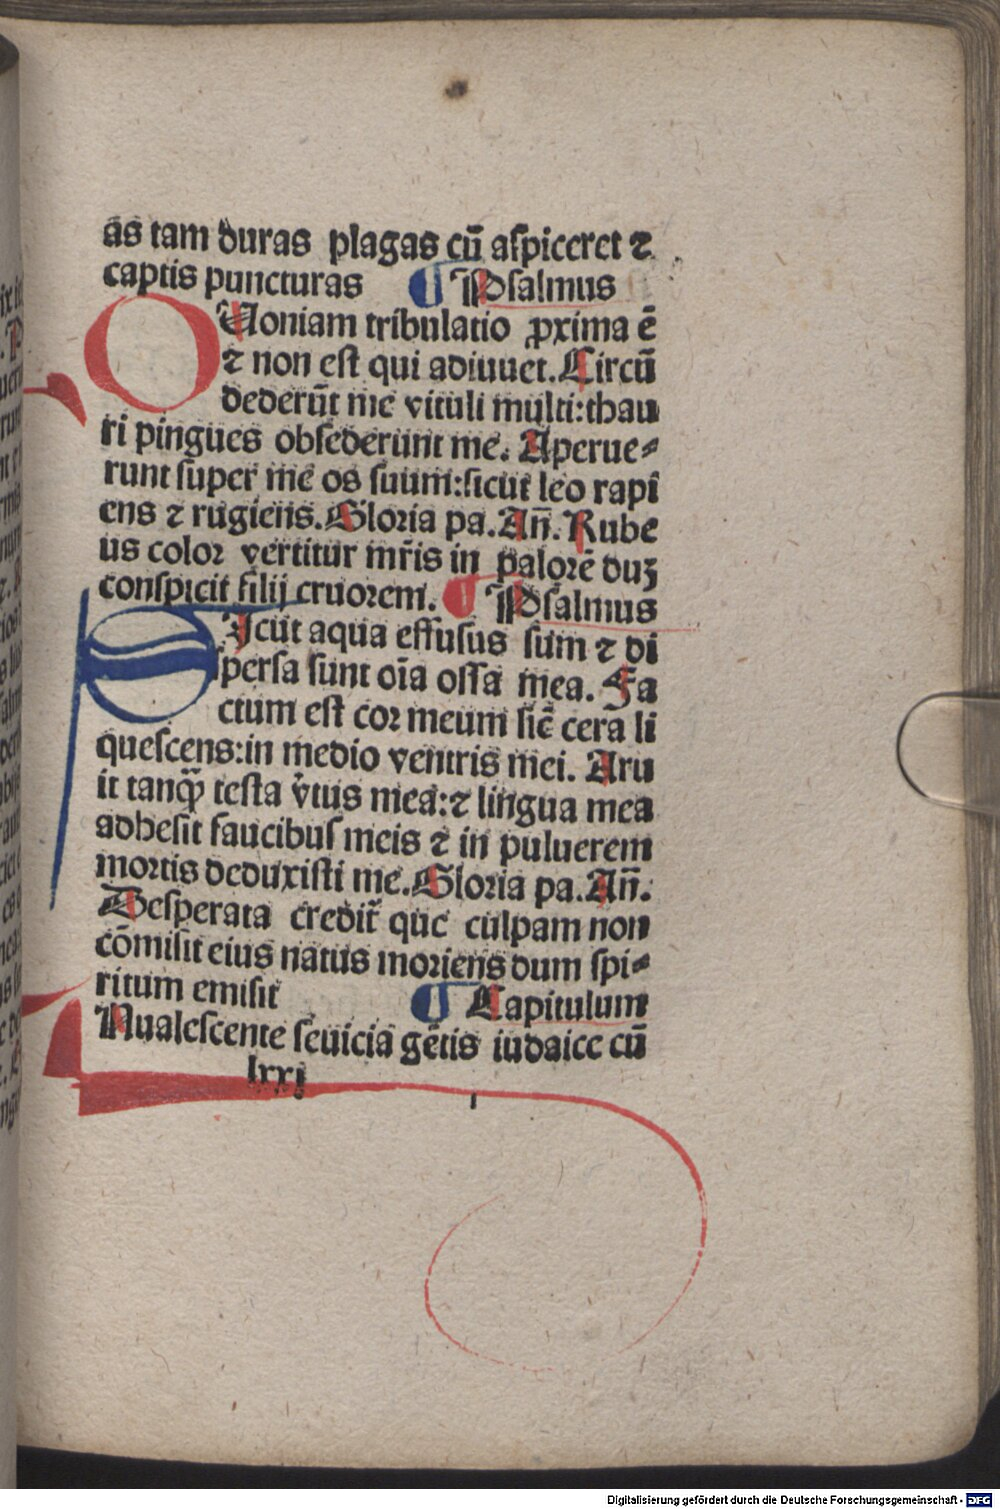 ãs tam duras plagas cũ aſpiceret ⁊
captis puncturas ¶ Pſalmus
QUoniam tribulatio ꝓxima ẽ
⁊ non eſt qui adiuuet. Circũ
dederũt me vituli multi: thau
ri pingues obſederunt me. Aperue⸗
runt ſuper me os ſuum: ſicut leo rapi
ens ⁊ rugiens. Gloria pa. An̄. Rube
us color vertitur mr̄is in palorẽ duꝫ
conſpicit filij cruorem. ¶ Pſalmus
SIcut aqua effuſus ſum ⁊ di
ſperſa ſunt oīa oſſa mea. Fa
ctum eſt cor meum ſic̄ cera li
queſcens: in medio ventris mei. Aru
it tanꝙ̃ teſta v̓tus mea: ⁊ lingua mea
adheſit faucibuſ meis ⁊ in puluerem
mortis deduxiſti me. Gloria pa. An̄.
Deſperata credit̃ que culpam non
cõmiſit eius natus moriens dum ſpi⸗
ritum emiſit ¶ Capitulum
Nualeſcente ſeuicia gẽtis iudaice cũ
lxxj